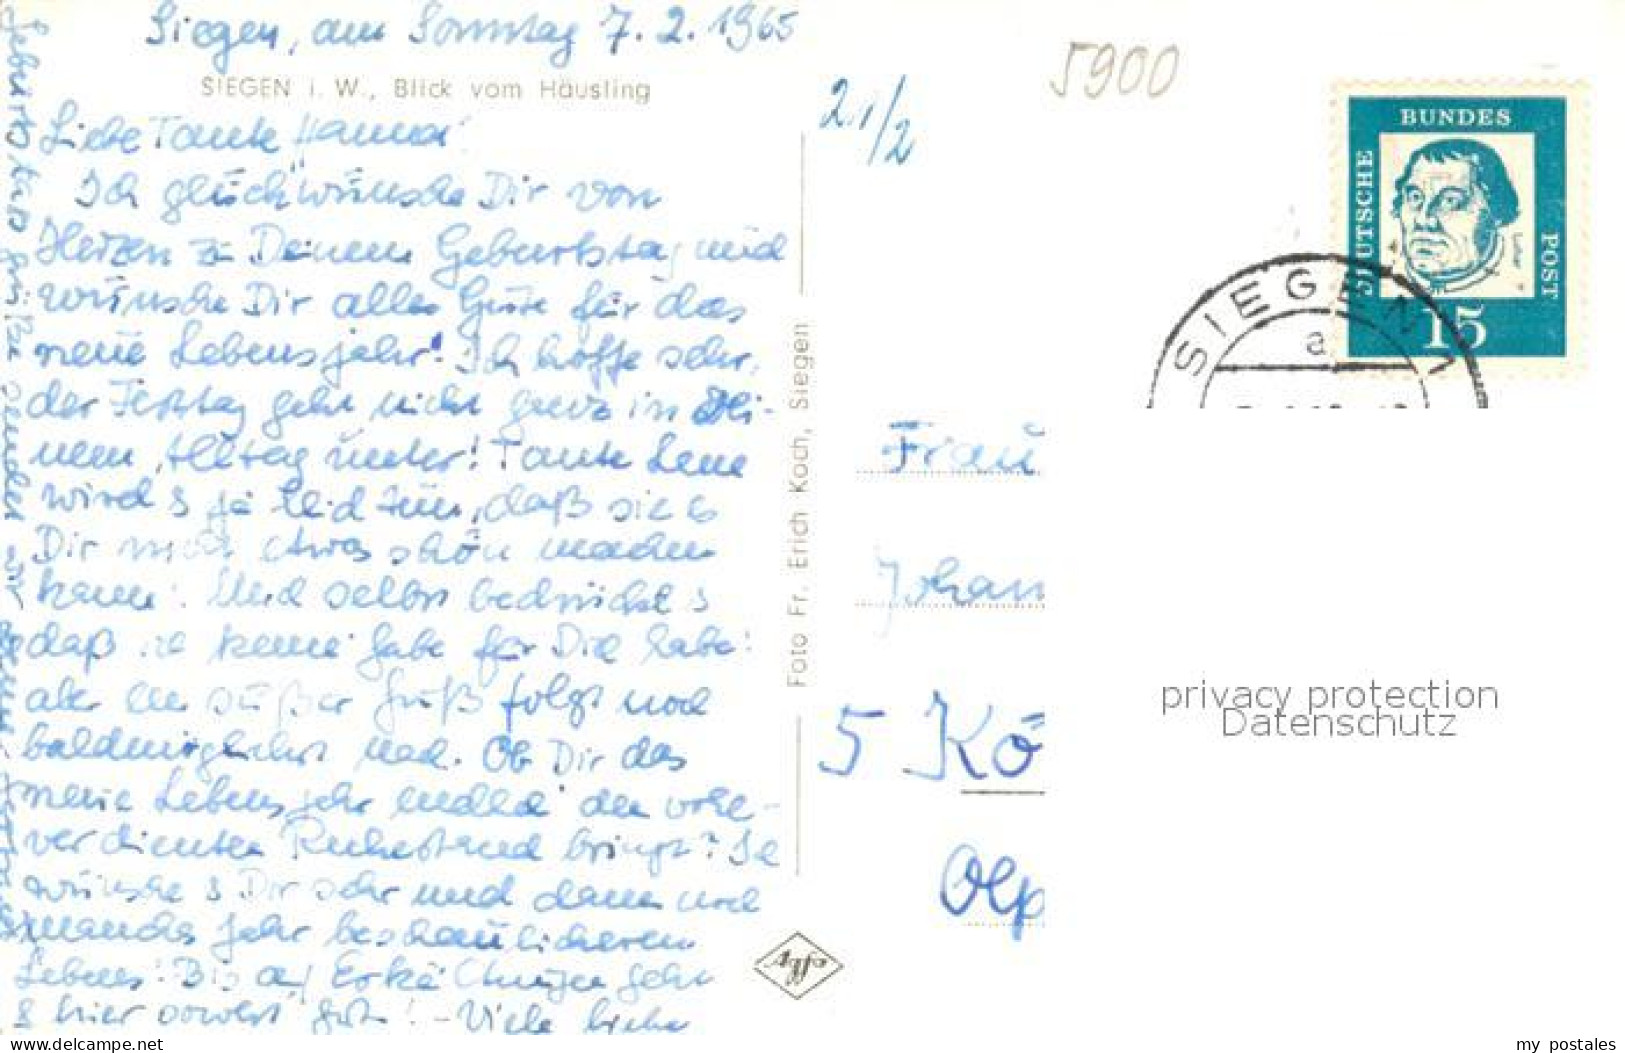 Siegen, am Sonntag 7.2.1965
SIEGEN i. W., Blick vom Häusling
Liebe Tante Hanna!
Ich glückwünsche Dir von
Herzen zu Deinem Geburtstag und
wünsche Dir alles Gute für das
neue Lebensjahr! Ich hoffe sehr,
der Festtag geht nicht ganz in
nem Alltag unter! Tante Lene
wird's ja leid tun, daß sie es
Dir nicht etwas schön machen
kann. Und selbst bedrückt's
daß ich keine Gabe für Dich habe:
aber ein süßer Gruß folgt noch
baldmöglichst nach. Ob Dir das
neue Lebensjahr endlich den wohl-
verdienten Ruhestand bringt? Ich
wünsche's Dir sehr und dann noch
manches Jahr beschaulicheren
Lebens! Bis auf Erkältungen geht
's hier soweit gut! - Viele liebe
Geburtstagsgrüße senden wir
Foto Fr. Erich Koch, Siegen
21/2
5900
DEUTSCHE
BUNDES
POST
Luther
15
SIEGEN 1
a
Frau
Johan
5 Kö
Olp
privacy protection
Datenschutz
Delcampe.net
my_postales